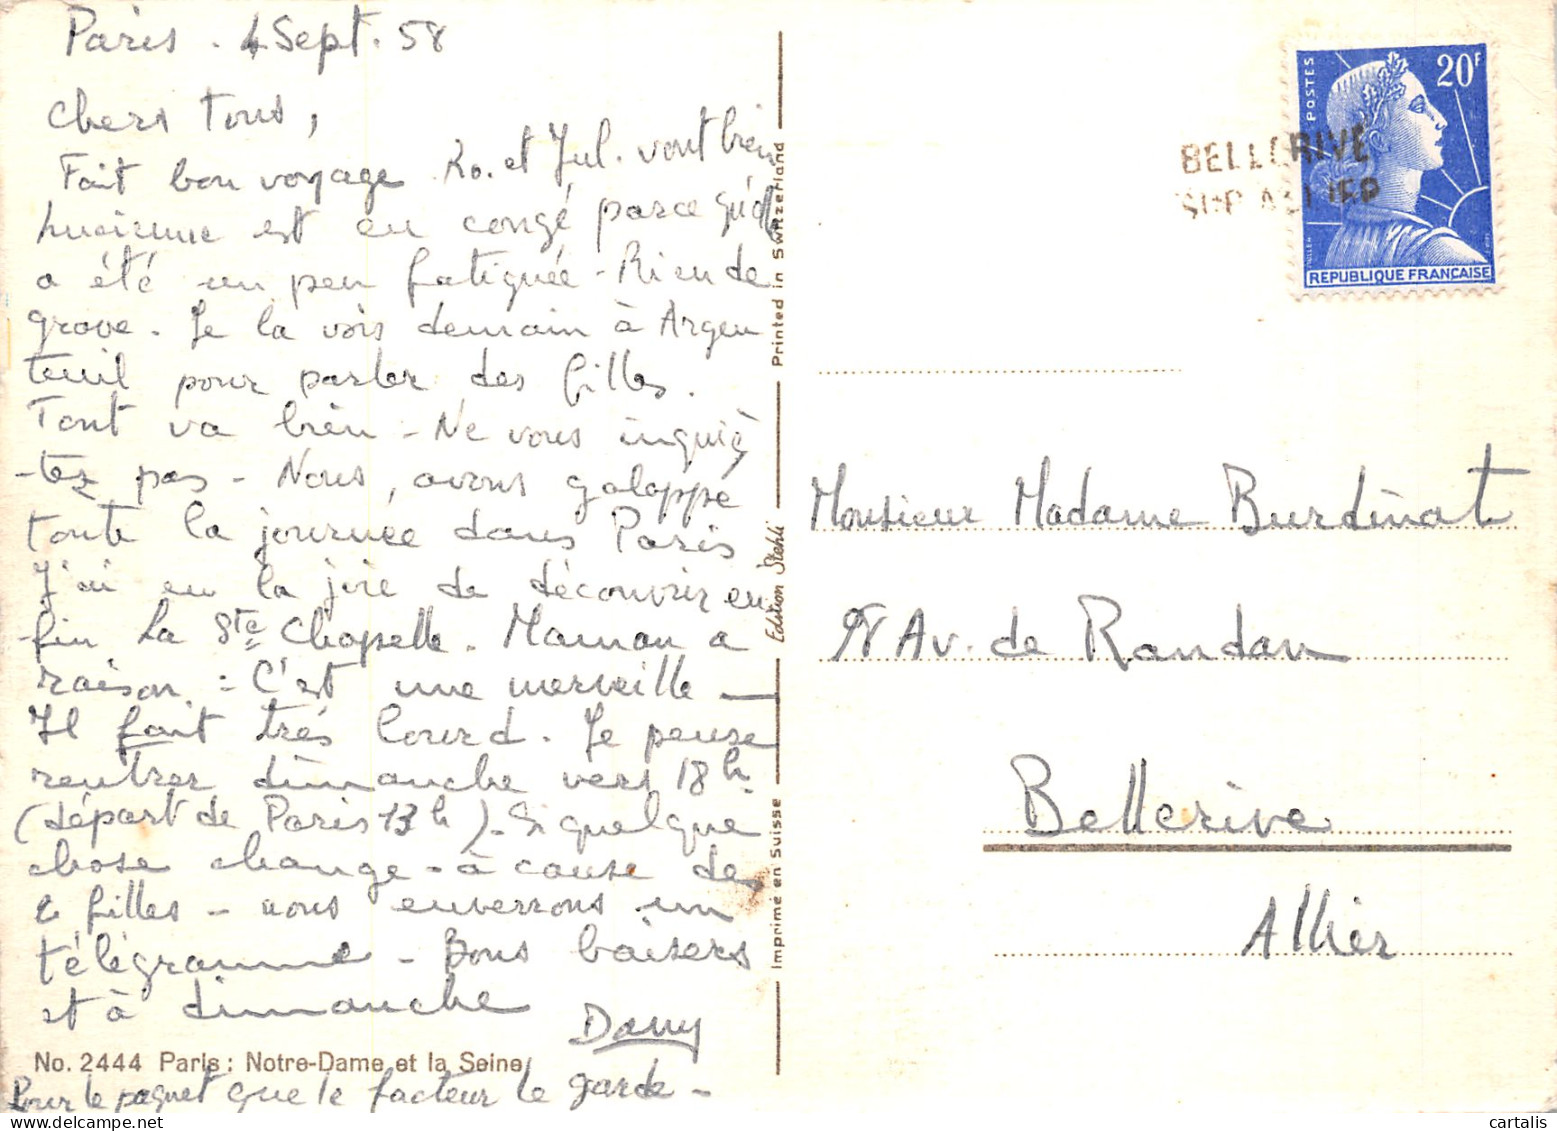 Paris . 4 Sept. 58
Chers Tous,
Fait bon voyage Ro. et Jul. vont bien
Lucienne est en congé parce qu'elle
a été un peu fatiguée - Rien de
grave. Je la vois demain à Argen
teuil pour parler des filles.
Tout va bien - Ne vous inquiè
-tez pas - Nous, avons galoppé
toute la journée dans Paris
J'ai eu la joie de découvrir en
fin La Ste Chapelle. Maman a
raison : C'est une merveille -
Il fait très lourd. Je pense
rentrer dimanche vers 18h.
(départ de Paris 13h) - Si quelque
chose change - à cause des
2 filles - nous enverrons un
télégramme - Bons baisers
et à dimanche
Dany
No. 2444 Paris: Notre-Dame et la Seine
Pour le paquet que le facteur le garde -
Imprimé en Suisse Edition Stehli Printed in Switzerland
POSTES
20F
REPUBLIQUE FRANÇAISE
MULLER
BELLERIVE
SUR ALLIER
Monsieur Madame Burdinat
Av. de Randan
Bellerive
Allier
cartalis